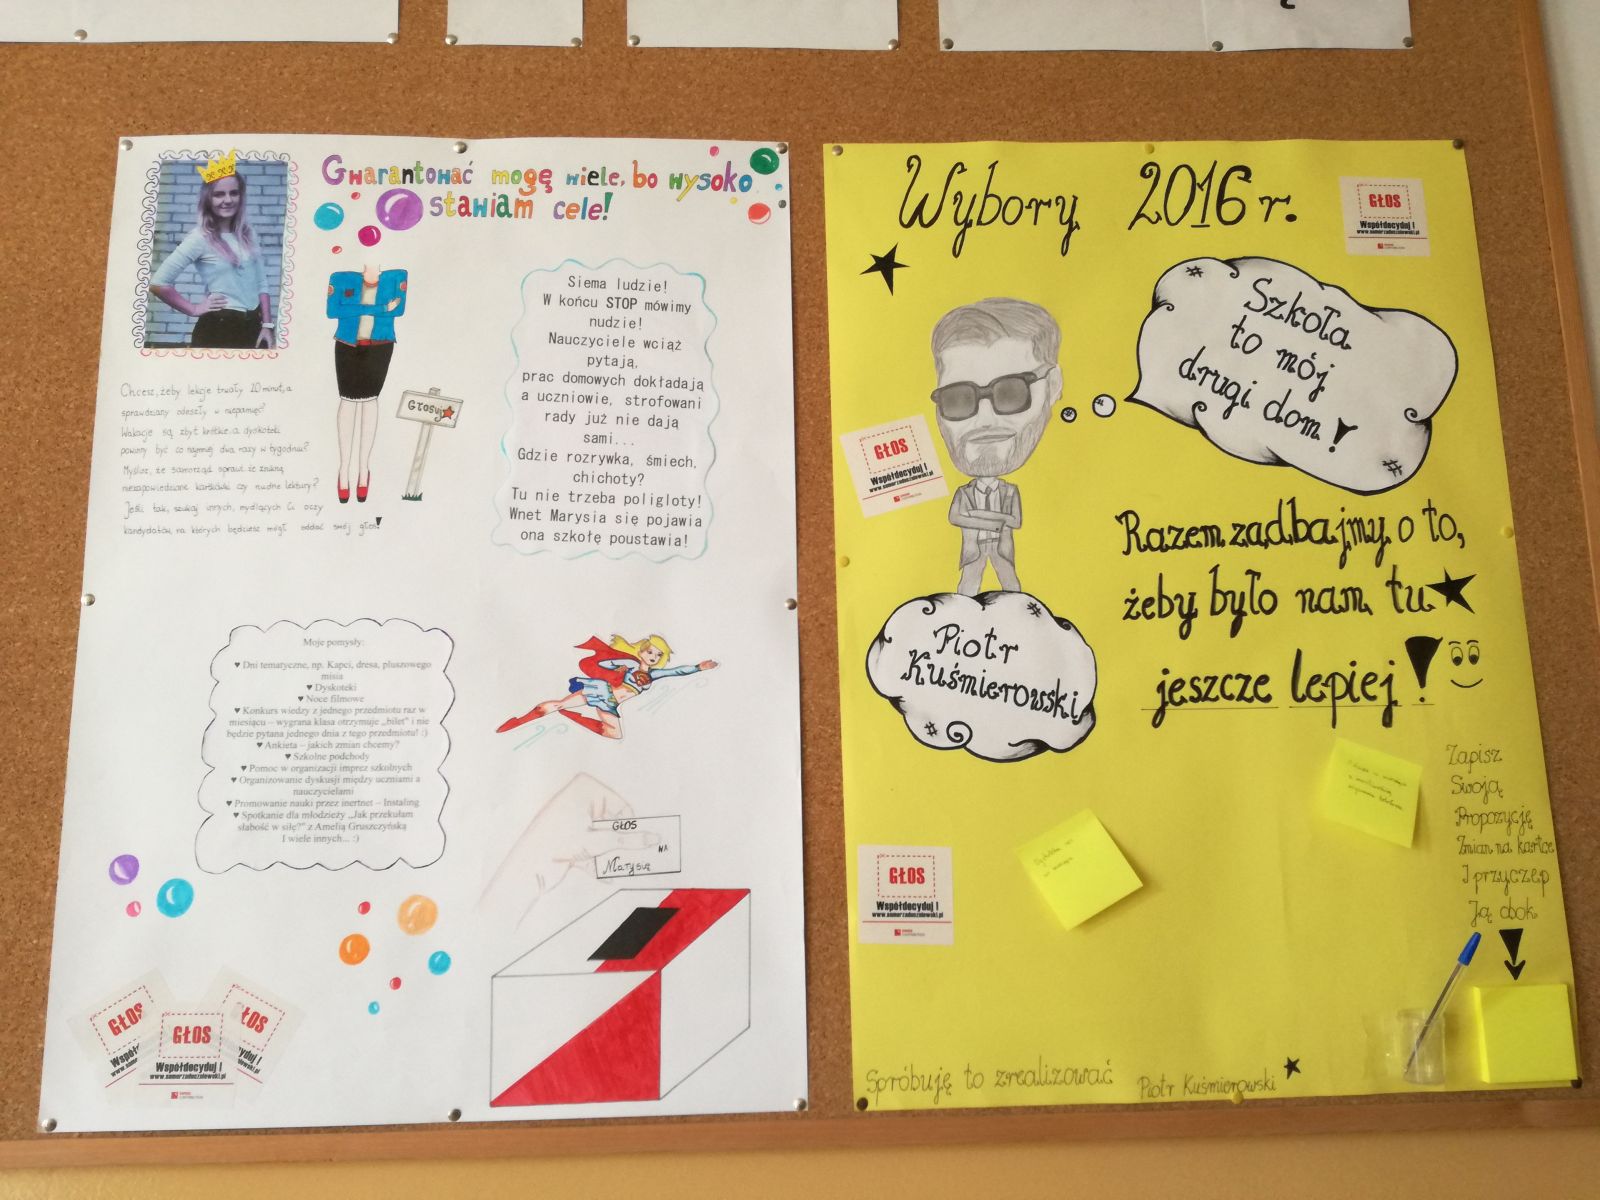 Gwarantować mogę wiele, bo wysoko
stawiam cele!
Siema ludzie!
W końcu STOP mówimy
nudzie!
Nauczyciele wciąż
pytają,
prac domowych dokładają
a uczniowie, strofowani
rady już nie dają
sami...
Gdzie rozrywka, śmiech,
chichoty?
Tu nie trzeba poligloty!
Wnet Marysia się pojawia
ona szkołę poustawia!
Głosuj
Chcesz, żeby lekcje trwały 20 minut, a
sprawdziany odeszły w niepamięć?
Wakacje są zbyt krótkie, a dyskoteki
powinny być co najmniej dwa razy w tygodniu?
Myślisz, że samorząd sprawi, że znikną
niezapowiedziane kartkówki czy nudne lektury?
Jeśli tak, szukaj innych, mydlących Ci oczy
kandydatów, na których będziesz mógł oddać swój głos!
Moje pomysły:
♥ Dni tematyczne, np. Kapci, dresa, pluszowego
misia
♥ Dyskoteki
♥ Noce filmowe
♥ Konkurs wiedzy z jednego przedmiotu raz w
miesiącu – wygrana klasa otrzymuje „bilet" i nie
będzie pytana jednego dnia z tego przedmiotu! :)
♥ Ankieta – jakich zmian chcemy?
♥ Szkolne podchody
♥ Pomoc w organizacji imprez szkolnych
♥ Organizowanie dyskusji między uczniami a
nauczycielami
♥ Promowanie nauki przez inertnet – Instaling
♥ Spotkanie dla młodzieży „Jak przekułam
słabość w siłę?" z Amelią Gruszczyńską
I wiele innych... :)
GŁOS
NA
Marysię
GŁOS
Współ
GŁOS
Współdecyduj !
www.samorzaduczniowski.pl
GŁOS
yduj !
Wybory 2016 r.
GŁOS
Współdecyduj !
www.samorzaduczniowski.pl
#
Szkoła
to mój
drugi dom!
#
#
GŁOS
Współdecyduj !
www.samorzaduczniowski.pl
Razem zadbajmy o to,
żeby było nam tu
jeszcze lepiej!
#
Piotr
Kuśmierowski
#
Zapisz
Swoją
Propozycję
Zmian na kartce
I przyczep
Ją obok
GŁOS
Współdecyduj !
www.samorzaduczniowski.pl
Spróbuję to zrealizować
Piotr Kuśmierowski